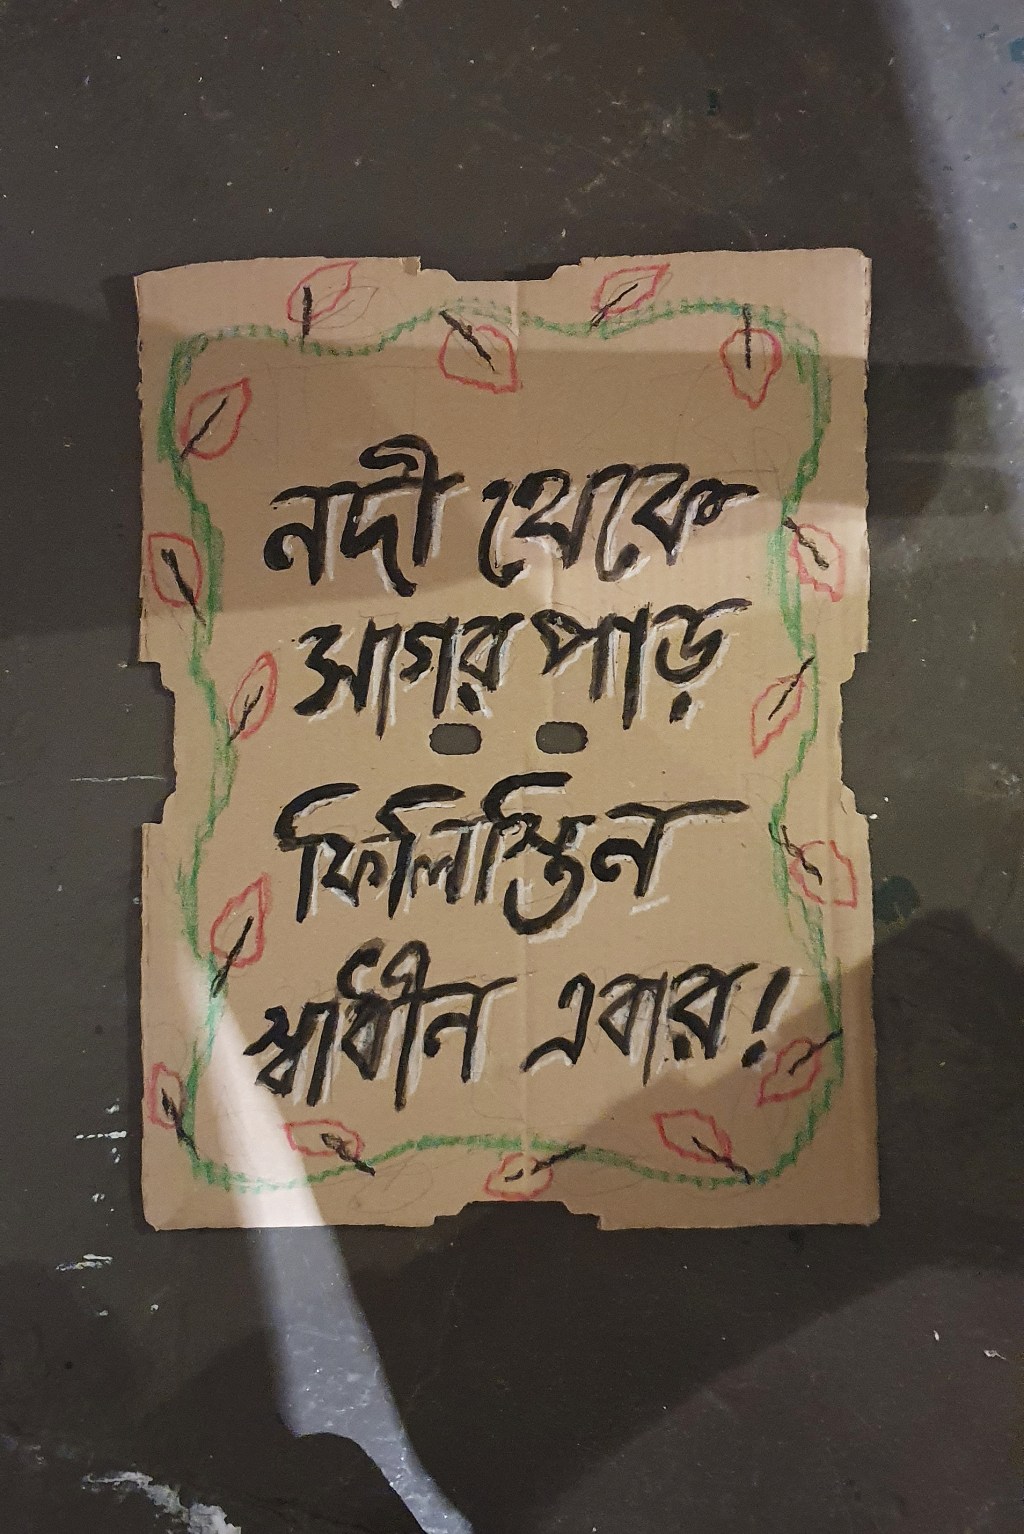 নদী থেকে
সাগর পাড়
ফিলিস্তিন
স্বাধীন এবার!